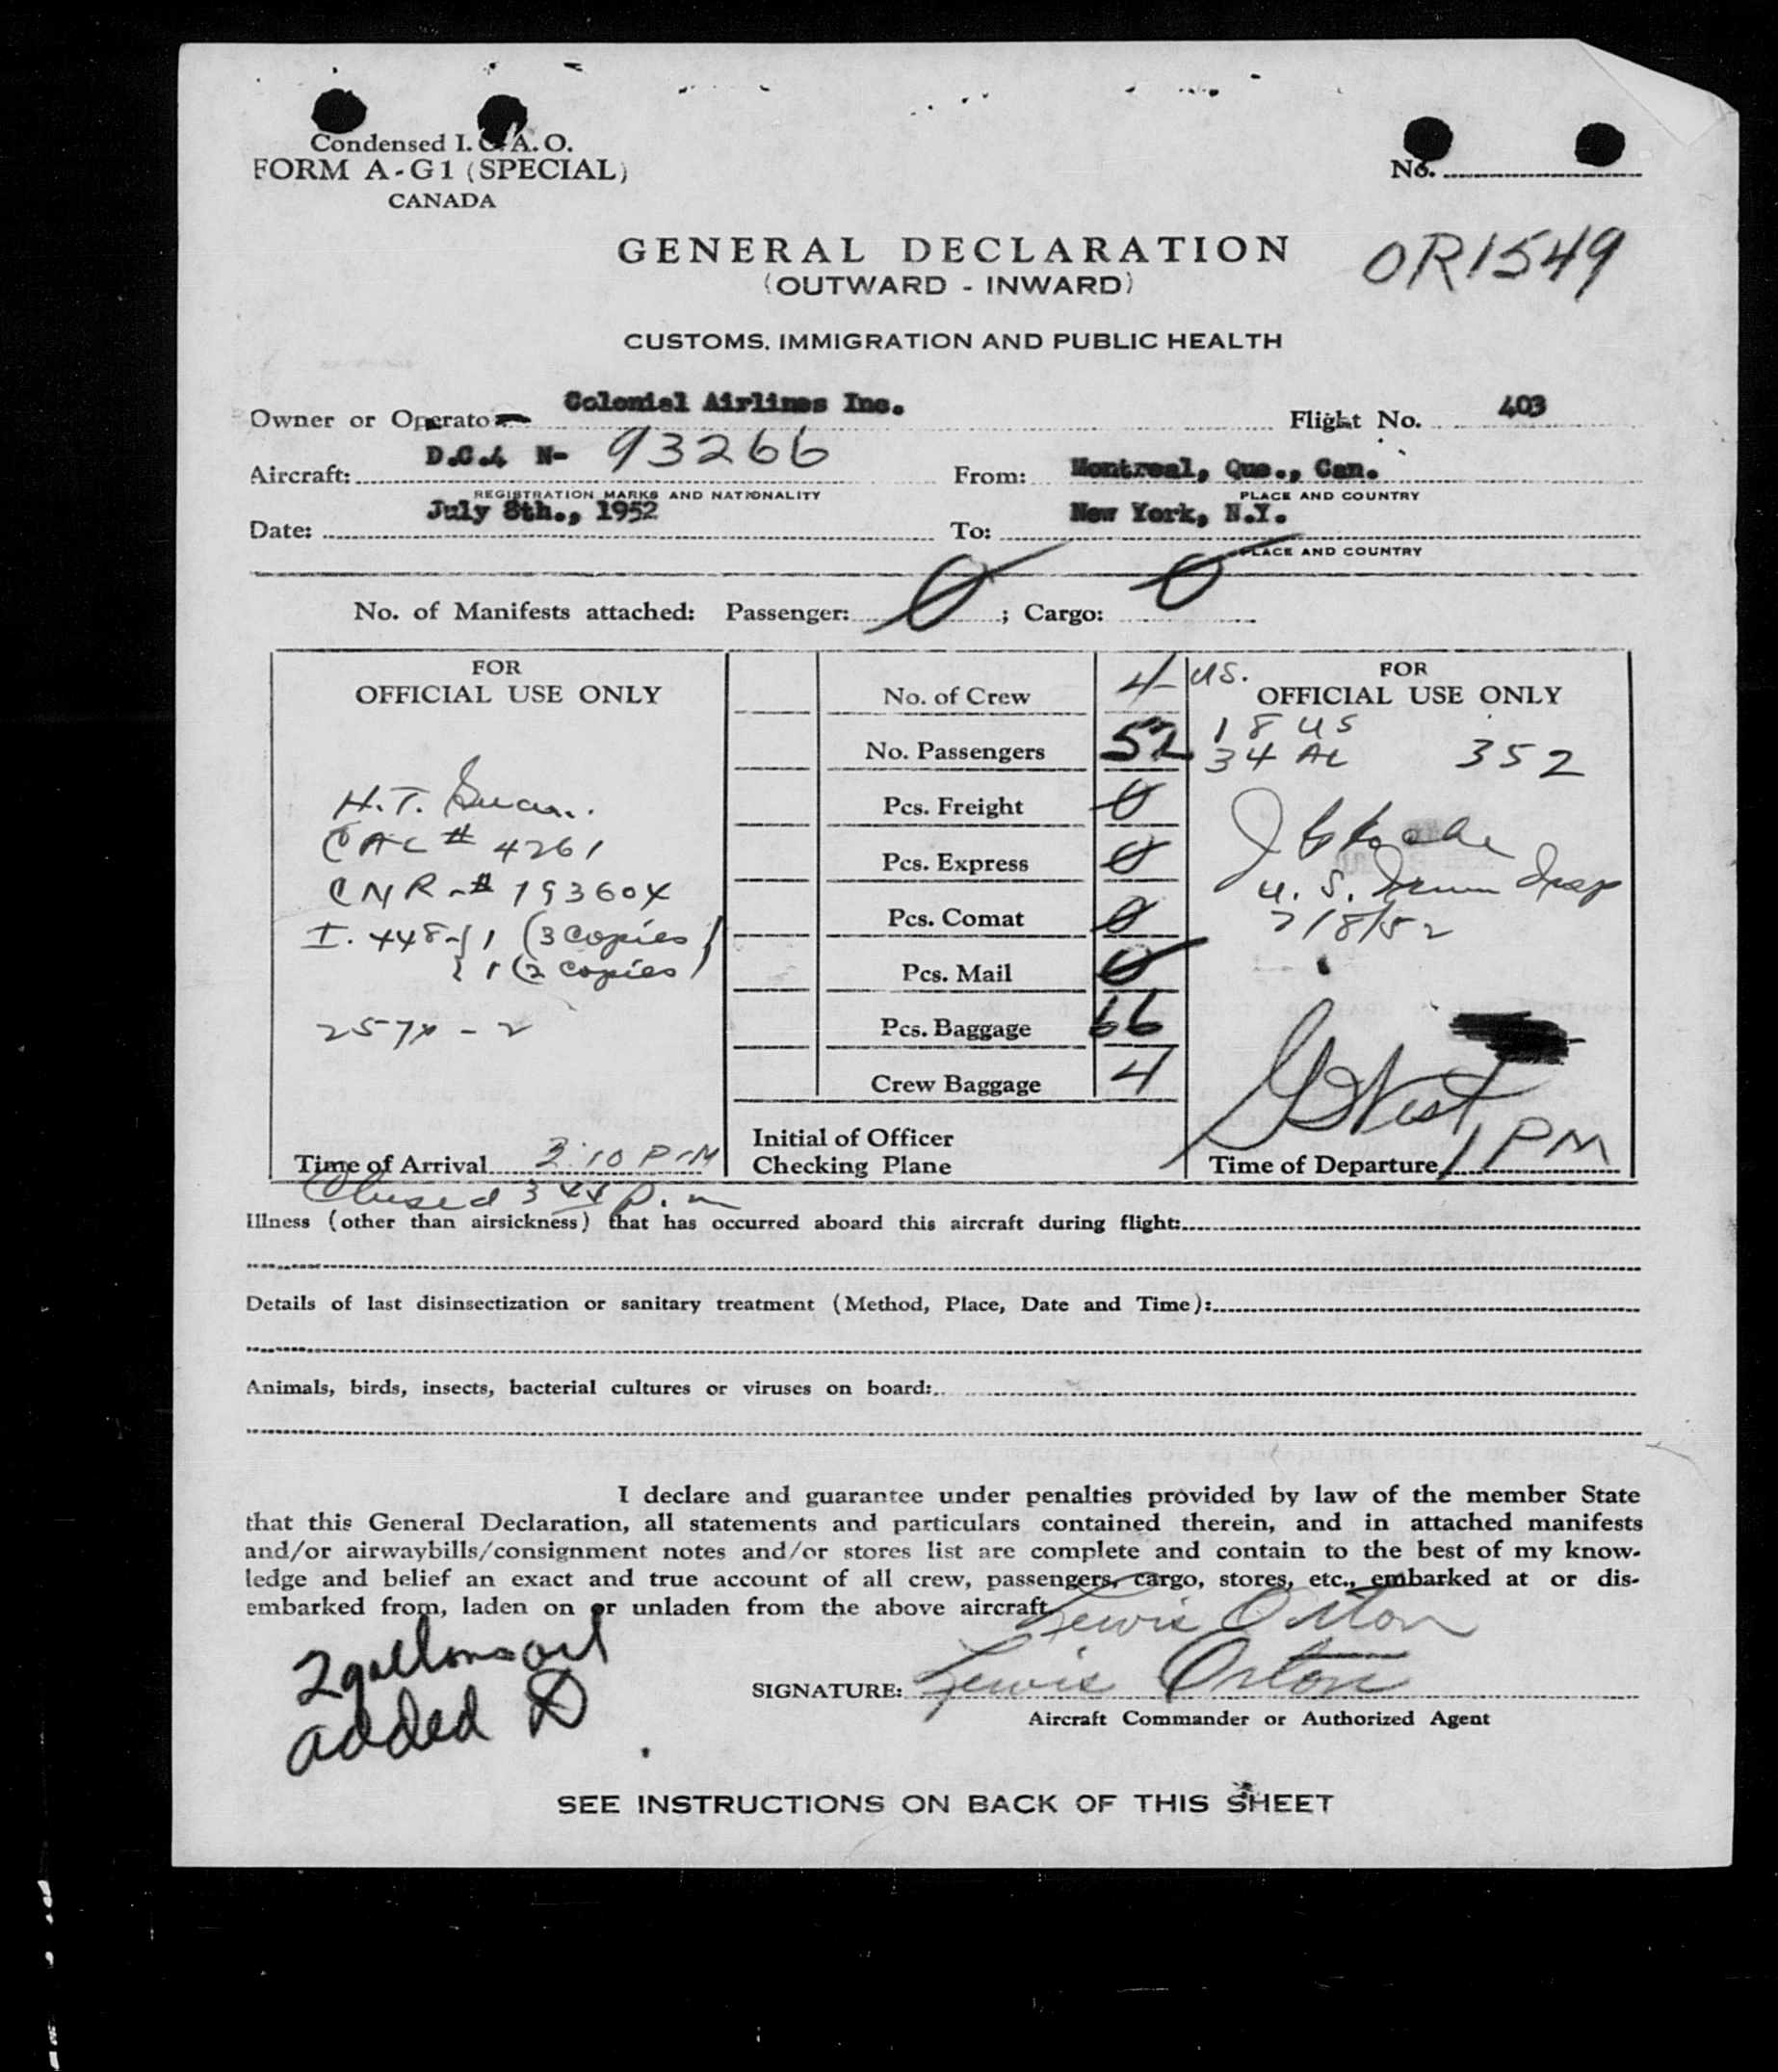 Condensed I.C.A.O.
FORM A-G1 (SPECIAL)
CANADA
No.
OR1549
GENERAL DECLARATION
(OUTWARD - INWARD)
CUSTOMS, IMMIGRATION AND PUBLIC HEALTH
Owner or Operator Colonial Airlines Inc. Flight No. 403
Aircraft: D.C.4 N- 93266 From: Montreal, Que., Can.
REGISTRATION MARKS AND NATIONALITY PLACE AND COUNTRY
Date: July 8th., 1952 To: New York, N.Y.
PLACE AND COUNTRY
No. of Manifests attached: Passenger: 0 ; Cargo: 0
FOR
OFFICIAL USE ONLY
H.T.
CAC # 4261
CNR-# 193604
I. 448-{ 1 (3 Copies)
{ 1 (2 copies)
Time of Arrival 2:10 P.M
Closed 3 44 p.m
No. of Crew 4 US.
No. Passengers 52
Pcs. Freight 0
Pcs. Express 0
Pcs. Comat 0
Pcs. Mail 0
Pcs. Baggage 66
Crew Baggage 4
Initial of Officer
Checking Plane
FOR
OFFICIAL USE ONLY
18 US
34 AL 352
U.S. Immn Insp
7/8/52
Time of Departure 1 PM
Illness (other than airsickness) that has occurred aboard this aircraft during flight:
Details of last disinsectization or sanitary treatment (Method, Place, Date and Time):
Animals, birds, insects, bacterial cultures or viruses on board:
I declare and guarantee under penalties provided by law of the member State
that this General Declaration, all statements and particulars contained therein, and in attached manifests
and/or airwaybills/consignment notes and/or stores list are complete and contain to the best of my know-
ledge and belief an exact and true account of all crew, passengers, cargo, stores, etc., embarked at or dis-
embarked from, laden on or unladen from the above aircraft.
Lewis Orton
2 gallons oil
added
SIGNATURE: Lewis Orton
Aircraft Commander or Authorized Agent
SEE INSTRUCTIONS ON BACK OF THIS SHEET